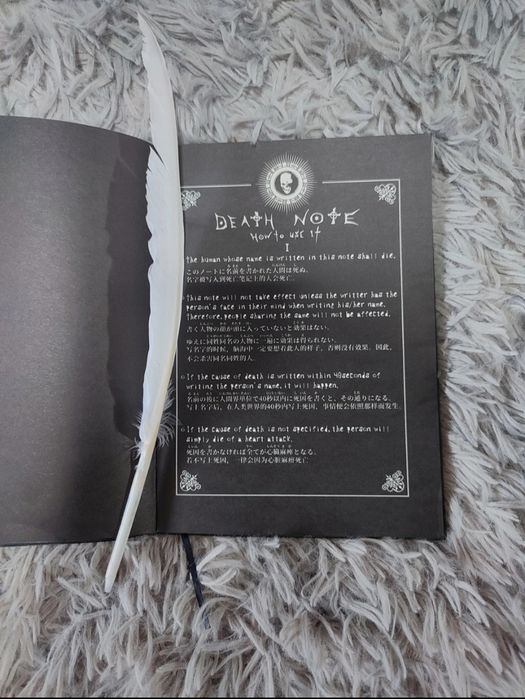 DEATH NOTE
HOW TO USE IT
I
The human whose name is written in this note shall die.
このノートに名前を書かれた人間は死ぬ。
名字被写入到死亡笔记上的人会死亡。
This note will not take effect unless the writter has the
person's face in their mind when writing his/her name.
Therefore, people sharing the same will not be affected.
書く人物の顔が頭に入っていないと効果はない。
ゆえに同姓同名の人物に一遍に効果は得られない。
写名字的时候，脑海中一定要想着此人的样子，否则没有效果。因此，
不会杀害同名同姓的人。
If the cause of death is written within 40seconds of
writing the person's name, it will happen.
名前の後に人間界単位で40秒以内に死因を書くと、その通りになる。
写上名字后，在人类世界的40秒内写上死因，事情便会依照那样而发生
If the cause of death is not specified, the person will
simply die of a heart attack.
死因を書かなければ全てが心臓麻痺となる。
若不写上死因，一律会因为心脏麻痹死亡